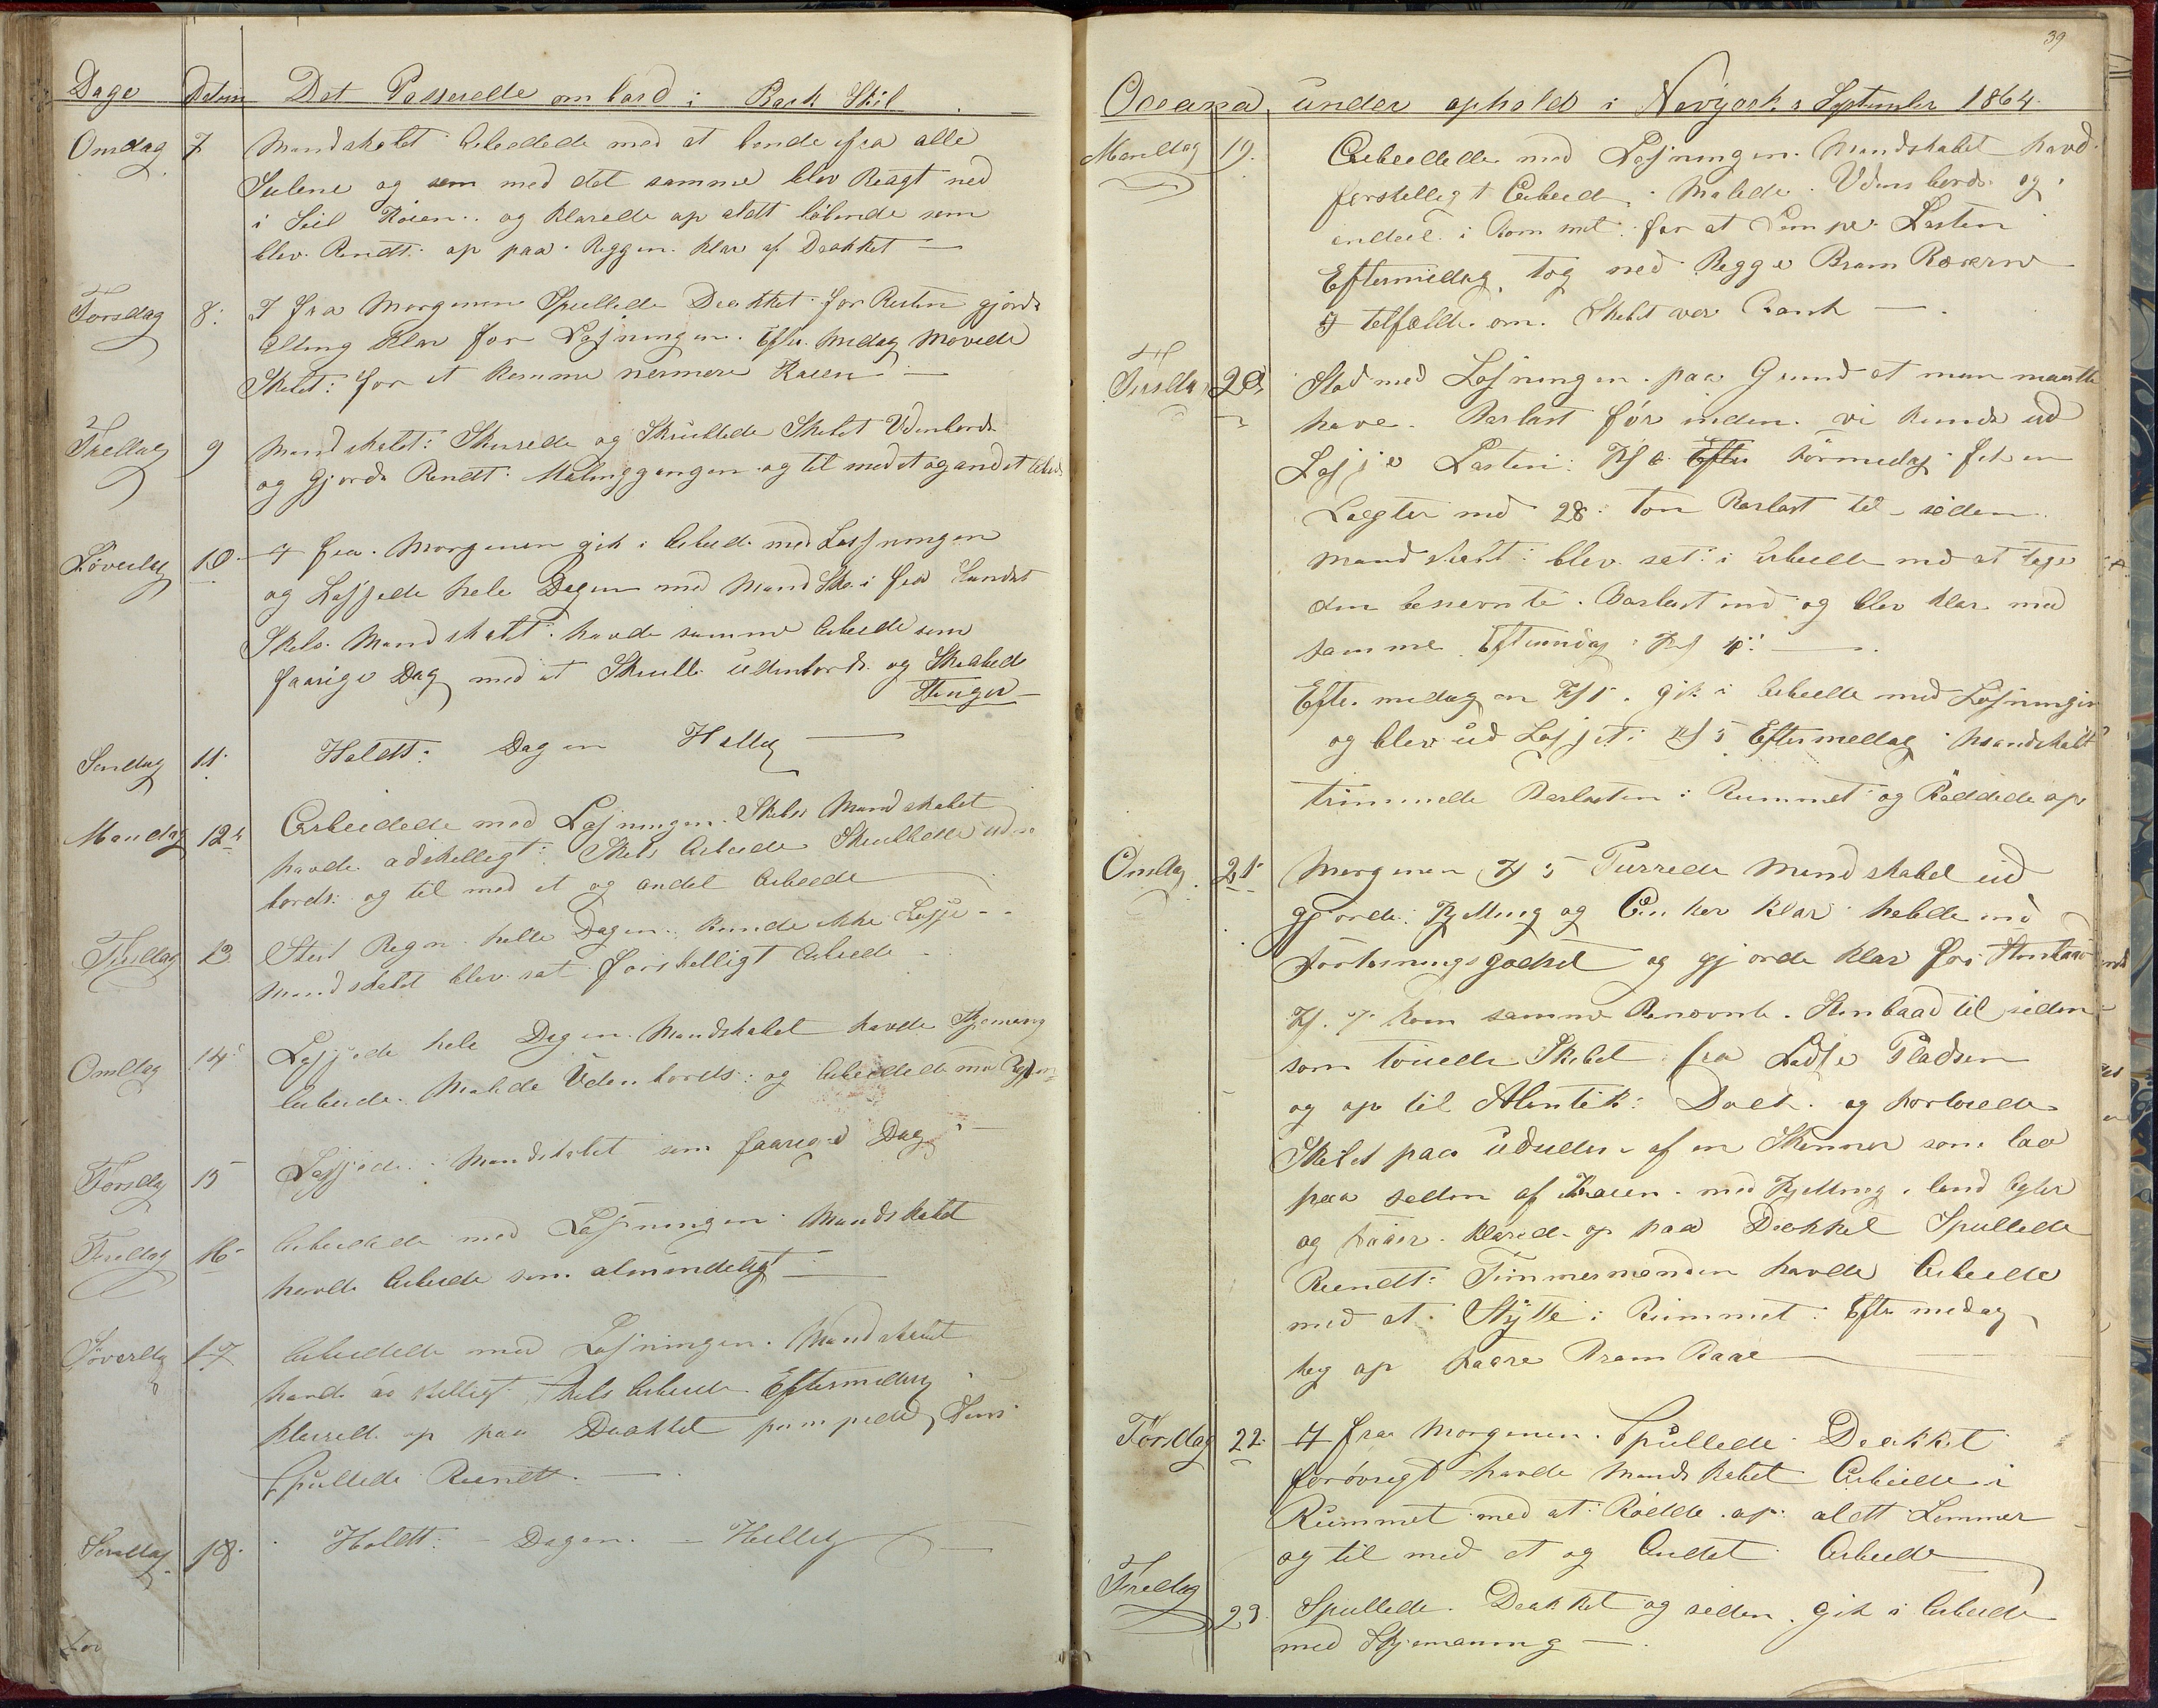 Dage Datum Det Passerelle om bord i Bark Skil
Onsdag 7 Mandskabet Arbeidede med at bende ifra alle
Seilene og som med det samme blev Bragt ned
i Seil Köien. og klarede op aldt löbende som
blev Rendt: op paa Reggen. klar af Dækket —
Torsdag 8: I fra Morgenen Spullede Dækket for Resten gjorde
alting klar for Losningen. Efter Midag Movede
Skebet: for at komme nermere Kaien —
Fredag 9 Mandskabet: Skurede og Skrubbede Skebet Udenbords
og gjorde Rendt: Malinggangen og til med et og andet
Löverdag 10. I fra Morgenen gik i Arbeide med Lossningen
og Lossede hele Dagen med Mand i fra Landet
Skebs Mandskabet: havde samme Arbeide som
faarige Dag med at Skrubbe udenbords og Skrabede
Stenger —
Sondag 11. Holdt: Dagen Hellig —
Mandag 12 Arbeidede med Losningen. Skebs Mandskabet
havde adskelligt: Skebs Arbeide Skrubbede uden
bords: og til med et og andet Arbeide
Tirsdag 13 Sterk Regn helle Dagen. Kunde ikke Losse -
Mandskabet blev sat forskelligt Arbeide
Onsdag 14 Lossede hele Dagen. Mandskabet havde Skjemang
Arbeide. Malede Udenbords: og Arbeidede
Torsdag 15 Lossede. Mandskabet som faarige Dag —
Fredag 16 Arbeidede med Losningen Mandskabet
havde Arbeide som almindeligt —
Löverdag 17 Arbeidede med Losningen. Mandskabet
havde adskelligt Skebs Arbeide Eftermidag
klarede op paa Dækket pompede Lens
Spullede Rendt. —
Sondag 18. Holdt: - Dagen. - Hellig —
39
Oceana, under ophold i Nevyork, September 1864.
Mandag 19. Arbeidede med Losningen. Mandskabet havde
forskelligt Arbeide. Malede Udenbords og
endeel i Rommet. for at Lempe Lasten
Eftermidag, tog ned Regge Bram Raaerne
I telfælde om. Skebet var Rank —
Tirsdag 20, Stod med Losningen. paa Grund at man maatte
have Barlast för inden. vi kunde ud
Losse Lasten: Kl 6 Efter Förmedag fik en
Lægter med 28: Ton Barlast til siden.
Mandskabet: blev sat i Arbeide med at tage
den benevnte. Barlast ind og blev klar med
samme Eftermidag: Kl 4: —
Efter medagen Kl 1. gik i Arbeide med Losningen
og blev ud Losset: Kl 5 Eftermedag Mandskabet
trimmede Barlasten i Rummet og Röddede op
Onsdag 21. Morgenen Kl 5 Purrede Mandskabet ud
gjorde: Kjetting og Anker klar heldede ind
Förtöiningsgodset og gjorde klar for
Kl. 7 kom samme Benævnte. Stenbaad til siden
som touede Skebet fra Losse Pladsen
og op til Alentik: Dock. og fortöiede
Skebet paa udsiden af en Skonner som laa
paa seden af Kaien. med Kjetting i land agter
og foran. klarede op paa Dækket Spullede
Rendt: Timmermanden havde Arbeide
med at Stytte i Rummet: Efter medag
tog op Raaer Bram Raae —
Torsdag 22. I fra Morgenen. Spullede Dækket
forövregt havde Mandskabet Arbeide i
Rummet med at Rödde op: aldt Lemmer
og til med et og Andet Arbeide —
Fredag 23. Spullede. Dækket og seden. gik i Arbeide
med Skjemanning —